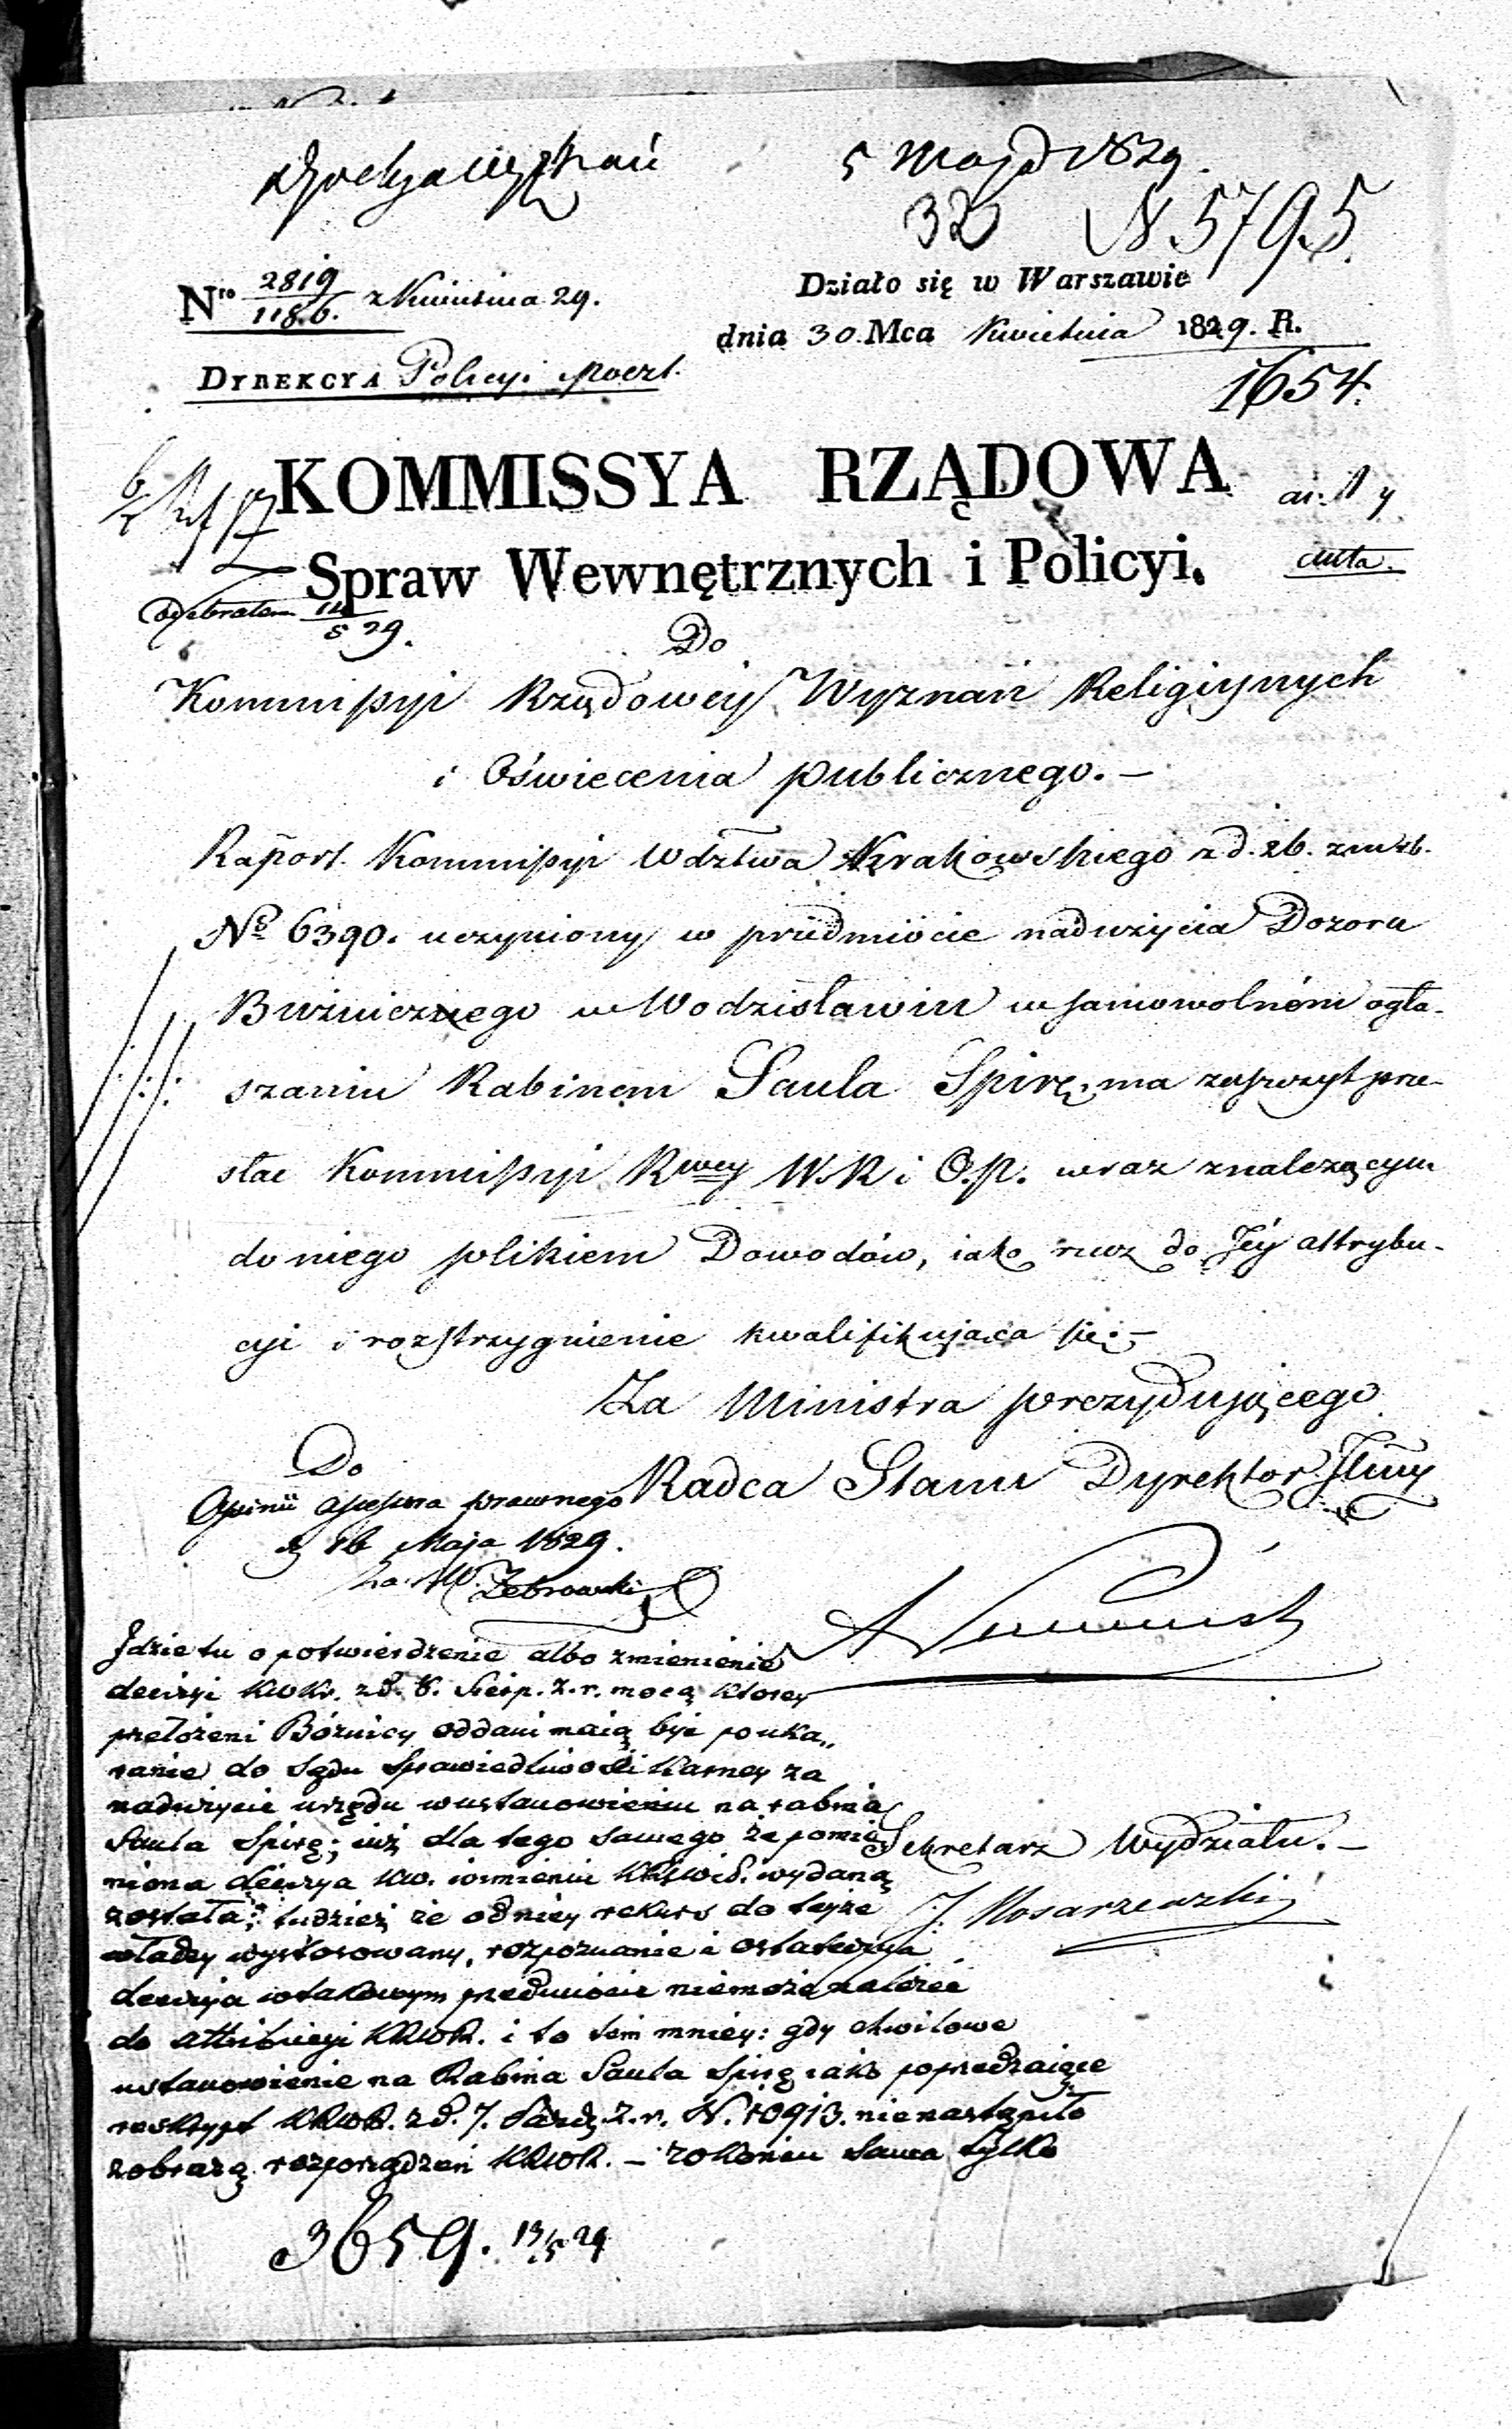 5 Maja 1829.
32 N 5795.
Nro 2819/1186. z Kwietnia 29.
Działo się w Warszawie
dnia 30. Mca Kwietnia 1829. R.
DYREKCYA Policyi
1654.
KOMMISSYA RZĄDOWA
Spraw Wewnętrznych i Policyi.
Odebrałem 14/5 29.
Do
Kommissyi Rządowey Wyznań Religiynych
i Oświecenia publicznego. —
Raport Kommissyi Wdztwa Krakowskiego z d. 26. z m. rb.
No 6390. uczyniony w przedmiocie nadużycia Dozoru
Bużnicznego w Wodzisławiu w samowolném ogła-
szaniu Rabinem Saula Spirę, ma zaszczyt prze-
słać Kommissyi Rwey W. R i O. P. wraz z należącym
do niego plikiem Dowodów, iako rzecz do Jéy attrybu-
cyi i rozstrzygnienie kwalifikująca się. —
Za Ministra prezydującego
Radca Stanu Dyrektor Jlny
Do
Opinii assessora prawnego
d. 16 Maja 1829.
Za Żebrowski
Jdzie tu o potwierdzenie albo zmienienie
decizyi KWKr. z d. 6. Sierp. z. r. mocą ktorey
przełożeni Bóżnicy oddani maią być po uka„
ranie do Sądu Sprawiedliwości Karney za
nadużycie urzędu w ustanowieniu na rabina
Saula Spirę; iuż dla tego samego że pomie
niona decizya KW. w imieniu wydaną
została; tudzież że od niey rekurs do teyże
władzy wystosowany, rozpoznanie i ostateczna
decizya w takowym przedmiocie niemoże należéć
do attribucyi KRWR. i to tem mniey: gdy chwilowe
ustanowienie na Rabina Saula Spirę iako poprzedzaiące
reskrypt KRWR. z d. 7. Paźdz. z. r. N. 10913. nie nastąpiło
z obrazą rozporządzeń KRWR. – zokoniu sama tylko
Sekretarz Wydziału. —
3659. 13/5 29